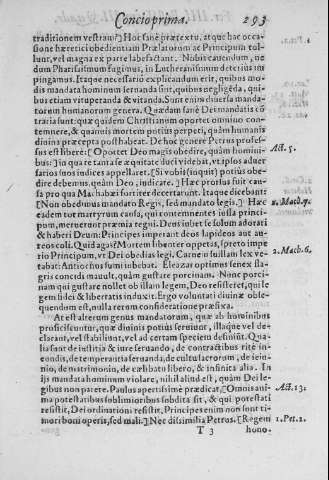 Concio prima. 293
traditionem vestram?] Hoc sanè prætextu, atque hac occa-
sione hæretici obedientiam Prælatorum ac Principum tol-
lunt, vel magna ex parte labefactant. Nobis cauendum, ne
dum Pharisaismum fugimus, in Lutheranismum deterius im
pingamus. Itaque necessariò explicandum erit, quibus mo-
dis mandata hominum seruanda sint, quibus negligēda, qui-
bus etiam vituperanda & vitanda. Sunt enim diuersa manda-
torum humanorum genera. Quædam sanè Dei mandatis cō
traria sunt: quæ quidem Christianum oportet omnino con-
temnere, & quamuis mortem potiùs perpeti, quàm humanis
diuina præcepta posthabeat. De hoc genere Petrus profes-
sus est liberè: [Oportet Deo magis obedire, quàm homini-
bus:] in qua re tanta se æquitate duci videbat, vt ipsos aduer
sarios suos iudices appellaret. [Si vobis (inquit) potiùs obe-
dire debemus, quàm Deo, iudicate.] Hæc prorsus fuit cau-
sa pro qua Machabæi fortiter decertarunt. Itaque dicebant:
[Non obedimus mandato Regis, sed mandato legis.] Hæc
eadem tot martyrum causa, qui contemnentes iussa princi-
pum, meruerunt præmia regni. Deus iubet se solum adorari
& haberi Deum: Principes imperant deos lapideos aut au-
reos coli. Quid agas? Mortem libenter oppetas, spreto impe
rio Principum, vt Dei obedias legi. Carnem suillam lex ve-
tabat: Antiochus sumi iubebat. Eleazar optimus senex fla-
gris concidi mauult, quàm gustare porcinam. Nunc porci-
nam qui gustare nollet ob illam legem, Deo resisteret, qui le
gem tidei & libertatis induxit. Ergo voluntati diuinæ obse-
quendum est, nulla rerum consideratione præfixa.
At est alterum genus mandatorum, quæ ab hominibus
proficiscuntur, quæ diuinis potiùs seruiunt, illaque vel de-
clarant, vel stabilitant, vel ad certam speciem definiunt. Qua-
lia sunt de iustitia & iure seruando, de contractibus ritè in-
eundis, de temperantia seruanda, de cultu sacrorum, de ieiu-
nio, de matrimonio, de cælibatu libero, & infinita alia. In
ijs mandata hominum violare, nihil aliud est, quàm Dei le-
gibus non parere. Paulus apertissimè prædicat: [Omnis ani-
ma potestatibus sublimioribus subdita sit, & qui potestati
resistit, Dei ordinationi resistit, Principes enim non sunt ti-
mori boni operis, sed mali.] Nec dissimilia Petrus. [Regem
T 3 hono-
Act. 5.
2. Mach. 7.
2. Mach. 6.
Act. 13.
1. Pet. 2.